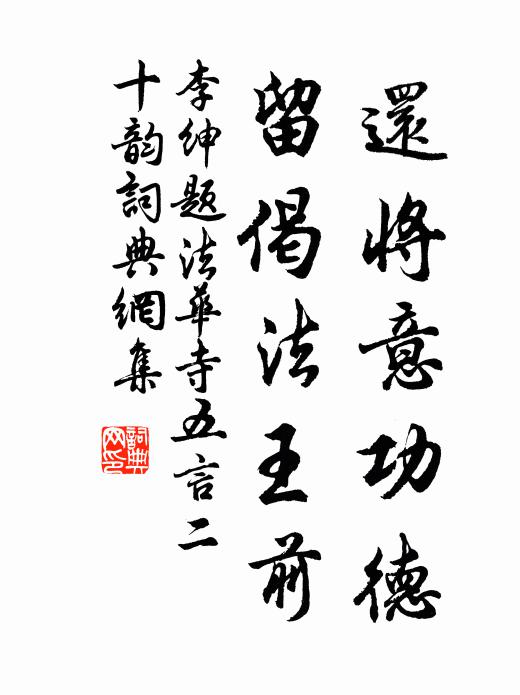 還將意功德
留偈法王前
李紳題法華寺五言二
十韵詞典網集
詞典
网印